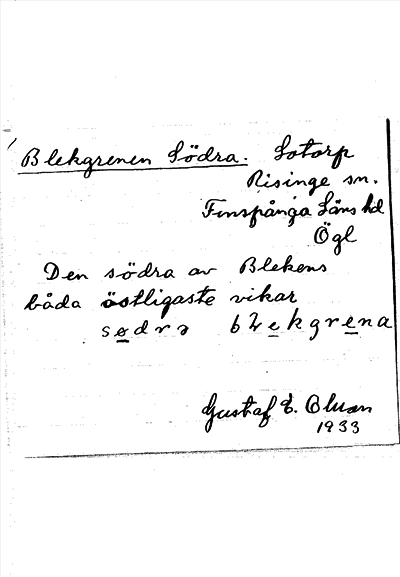 Blekgrenen Södra. Sotorp
Risinge sn.
Finspånga Läns hd
Ögl
Den södra av Blekens
båda östligaste vikar
sødrə blekgrena
Gustaf E. Olsson
1933